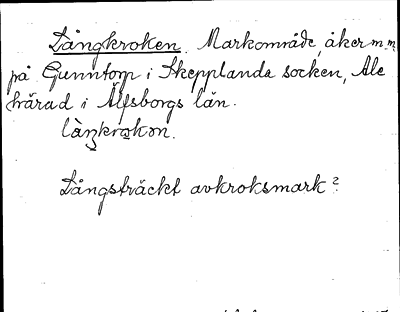 Långkroken. Markområde, åker m.m.
på Gunntorp i Skepplanda socken, Ale
härad i Älfsborgs län.
làŋkrokon.
Långsträckt avkroksmark?